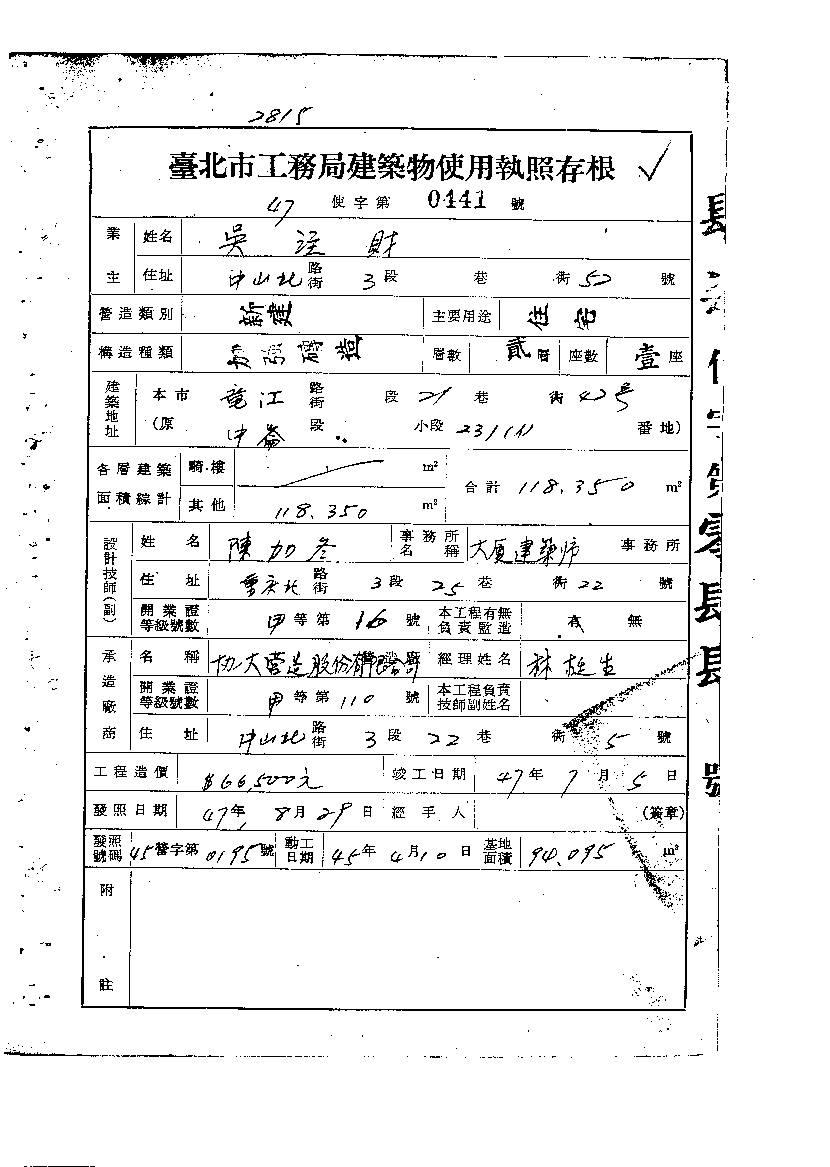 2815
臺北市工務局建築物使用執照存根 ✓
47 使字第 0441 號
業主 姓名 吳 財
住址 中山北 路街 3 段 巷 街 52 號
營造類別 新建 主要用途 住宅
構造種類 加強磚造 層數 貳層 座數 壹座
建築地址 本市 龍江 路街 段 21 巷 街 42 號
(原 中崙 段 小段 231(1) 番地)
各層建築面積總計 騎樓 m² 合計 118.350 m²
其他 118.350 m²
設計技師(副) 姓名 陳加冬 事務所名稱 大廈建築師 事務所
住址 重慶北 路街 3 段 25 巷 街 22 號
開業證等級號數 甲等第 16 號 本工程有無負責監造 有 無
承造廠商 名稱 協大營造股份有限公司 經理姓名 林挺生
開業證等級號數 甲等第 110 號 本工程負責技師副姓名
住址 中山北 路街 3 段 22 巷 街 5 號
工程造價 $66,500元 竣工日期 47年 7月 5日
發照日期 47年 8月 29日 經手人 (簽章)
發照號碼 45營字第 0195 號 動工日期 45年 4月10日 基地面積 94.095 m²
附註
字第零肆肆 號